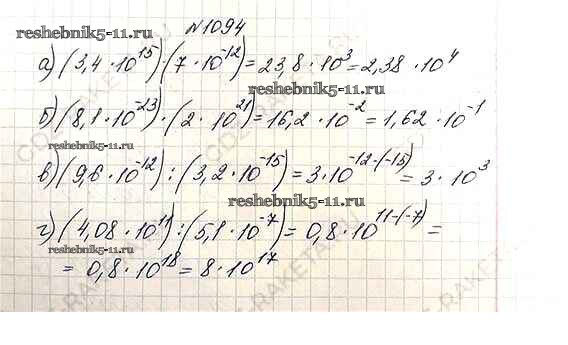 №1094
reshebnik5-11.ru
а) (3,4·10¹⁵)·(7·10⁻¹²)=23,8·10³=2,38·10⁴
reshebnik5-11.ru
б) (8,1·10⁻²³)·(2·10²¹)=16,2·10⁻²=1,62·10⁻¹
reshebnik5-11.ru
в) (9,6·10⁻¹²):(3,2·10⁻¹⁵)=3·10⁻¹²⁻⁽⁻¹⁵⁾=3·10³
reshebnik5-11.ru
г) (4,08·10¹¹):(5,1·10⁻⁷)=0,8·10¹¹⁻⁽⁻⁷⁾=
reshebnik5-11.ru
=0,8·10¹⁸=8·10¹⁷